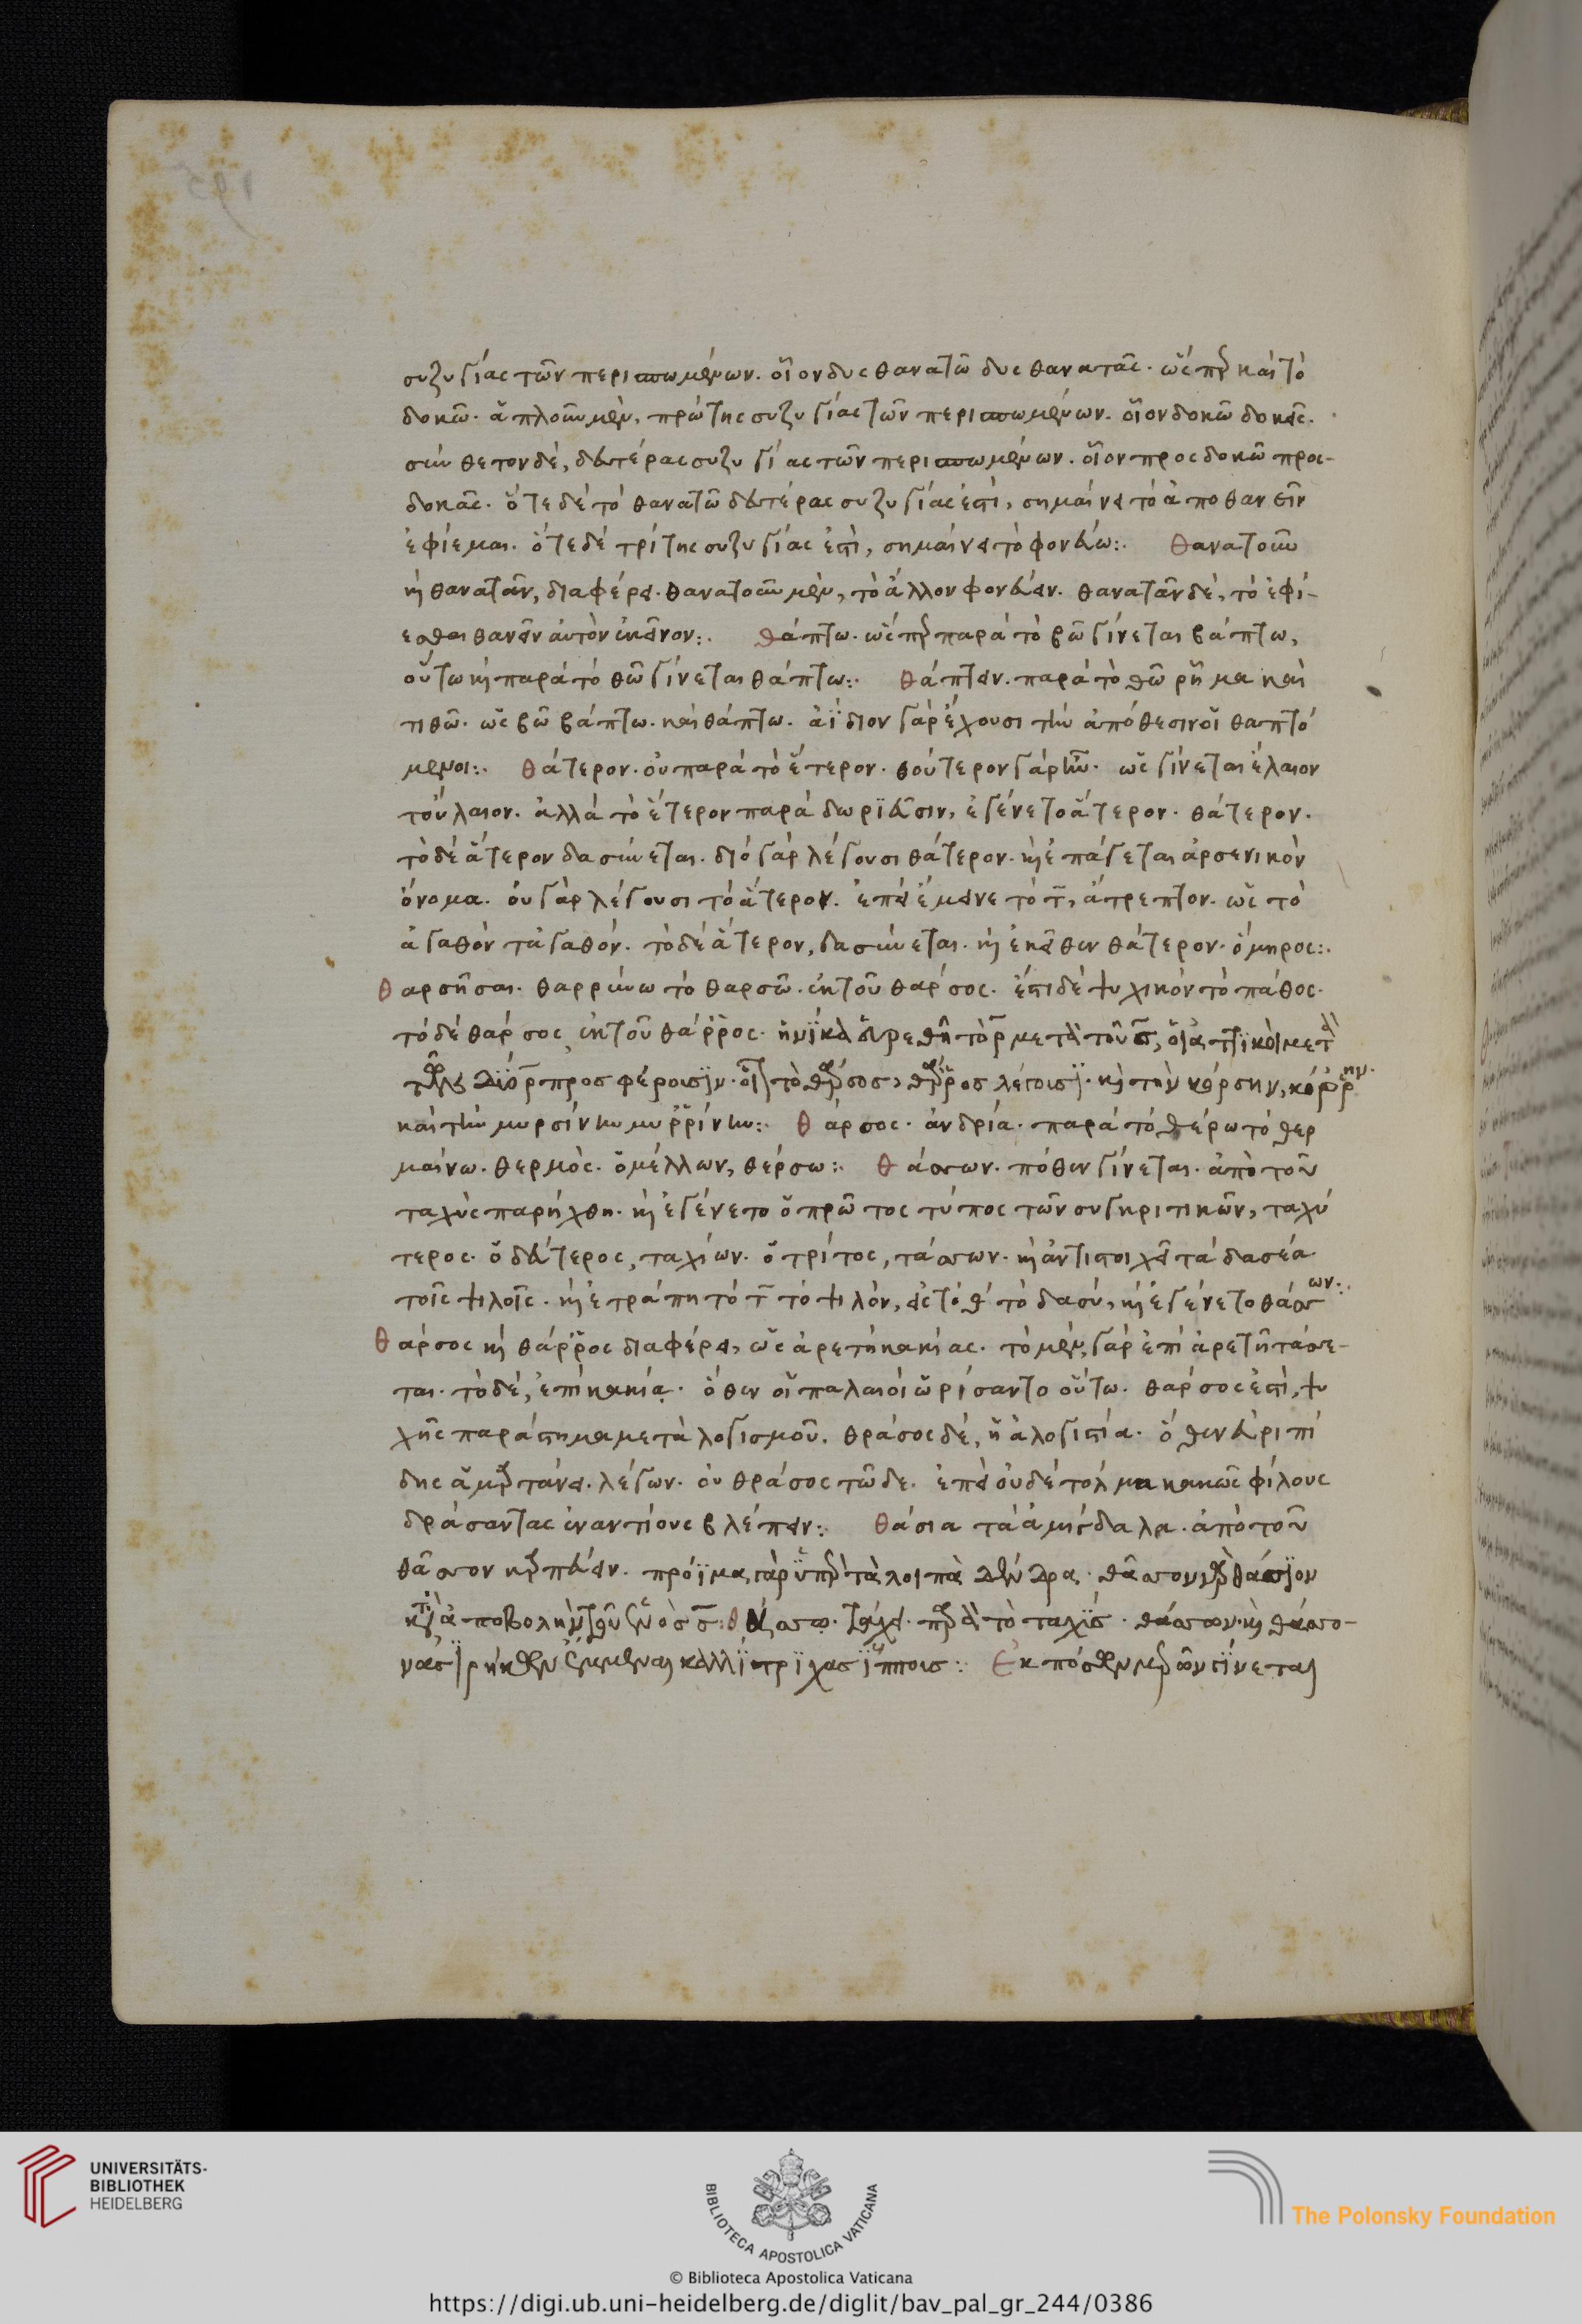 συζυγίας τῶν περισπωμένων. οἷον δυσθανατῶ δυσθανατᾶς. ὥσπερ καὶ τὸ
δοκῶ. ἁπλοῦν μὲν, πρώτης συζυγίας τῶν περισπωμένων. οἷον δοκῶ δοκεῖς.
σύνθετον δέ, δευτέρας συζυγίας τῶν περισπωμένων. οἷον προσδοκῶ προσ-
δοκᾶς. ὅτε δὲ τὸ θανατῶ δευτέρας συζυγίας ἐστὶ, σημαίνει τὸ ἀποθανεῖν
ἐφίεμαι. ὅτε δὲ τρίτης συζυγίας ἐστὶ, σημαίνει τὸ φονεύω:. θανατοῦν
καὶ θανατᾶν, διαφέρει. θανατοῦν μὲν, τὸ ἄλλον φονεύειν. θανατᾶν δέ, τὸ ἐφί-
εσθαι θανεῖν αὐτὸν ἐκεῖνον:. θάπτω. ὥσπερ παρὰ τὸ βῶ γίνεται βάπτω,
οὕτω καὶ παρὰ τὸ θῶ γίνεται θάπτω:. θάπτειν. παρὰ τὸ θῶ ῥῆμα καὶ
τιθῶ. ὡς βῶ βάπτω. καὶ θάπτω. ἀΐδιον γὰρ ἔχουσι τὴν ἀπόθεσιν οἱ θαπτό
μενοι:. θάτερον. οὐ παρὰ τὸ ἕτερον. θούτερον γὰρ ἦν. ὡς γίνεται ἔλαιον
τοὔλαιον. ἀλλὰ τὸ ἕτερον παρὰ δωριεῦσιν, ἐγένετο ἅτερον. θάτερον.
τὸ δὲ ἅτερον δασύνεται. διὸ γὰρ λέγουσι θάτερον. καὶ ἐπάγεται ἀρσενικὸν
ὄνομα. οὐ γὰρ λέγουσι τὸ ἅτερον. ἐπεὶ ἔμεινε τὸ τ, ἄτρεπτον. ὡς τὸ
ἀγαθὸν τἀγαθόν. τὸ δὲ ἅτερον, δασύνεται. καὶ ἐκεῖθεν θάτερον. ὅμηρος:.
θαρσῆσαι. θαρρύνω τὸ θαρσῶ. ἐκ τοῦ θάρσος. ἔστι δὲ ψυχικὸν τὸ πάθος.
τὸ δὲ θάρσος, ἐκ τοῦ θάρρος. ἡνίκα εὑρεθῆ τὸ ρ μετὰ τοῦ σ, οἱ ἀττικοὶ μετὰ
προσφέρουσιν. οἷον τὸ θάρσος, θάρρος λέγουσι. καὶ τὴν κόρσην, κόρρην.
καὶ τὴν μυρσίνην μυρρίνην:. θάρσος. ἀνδρία. παρὰ τὸ θέρω τὸ θερ
μαίνω. θερμὸς. ὁ μέλλων, θέρσω:. θάσσων. πόθεν γίνεται. ἀπὸ τοῦ
ταχὺς παρήχθη. καὶ ἐγένετο ὁ πρῶτος τύπος τῶν συγκριτικῶν, ταχύ
τερος. ὁ δεύτερος, ταχίων. ὁ τρίτος, τάσσων. καὶ ἀντιστοιχεῖ τὰ δασέα
τοῖς ψιλοῖς. καὶ ἐτράπη τὸ τ τὸ ψιλόν, εἰς τὸ θ τὸ δασύ, καὶ ἐγένετο θάσσων:.
θάρσος καὶ θάρρος διαφέρει, ὡς ἀρετὴ κακίας. τὸ μὲν γὰρ ἐπὶ ἀρετῆ τάσσε-
ται. τὸ δέ, ἐπὶ κακίᾳ. ὅθεν οἱ παλαιοὶ ὡρίσαντο οὕτω. θάρσος ἐστὶ, ψυ
χῆς παράστημα μετὰ λογισμοῦ. θράσος δέ, ἡ ἀλογιστία. ὅθεν εὐριπί
δης ἁμαρτάνει. λέγων. οὐ θράσος τῶδε. ἐπεὶ οὐδὲ τόλμα κακῶς φίλους
δράσαντας ἐναντίους βλέπειν:. θάσια τὰ ἀμύγδαλα. ἀπὸ τοῦ
θᾶσσον καρπεύειν. πρόϊμα γὰρ ὑπὲρ τὰ λοιπὰ δένδρα. θᾶσσον καὶ θάσσιον
κατὰ ἀποβολὴν τοῦ ἑνὸς σ: θάσσω. ταχεῖ. παρὰ τὸ ταχύς. θάσσων. καὶ θάσσο-
νας θρήκηθεν ἔμμεναι καλλίτριχας ἵππους:. Ἐκ πόσων μερῶν γίνεται
UNIVERSITÄTS-
BIBLIOTHEK
HEIDELBERG
BIBLIOTECA APOSTOLICA VATICANA
The Polonsky Foundation
© Biblioteca Apostolica Vaticana
https://digi.ub.uni-heidelberg.de/diglit/bav_pal_gr_244/0386